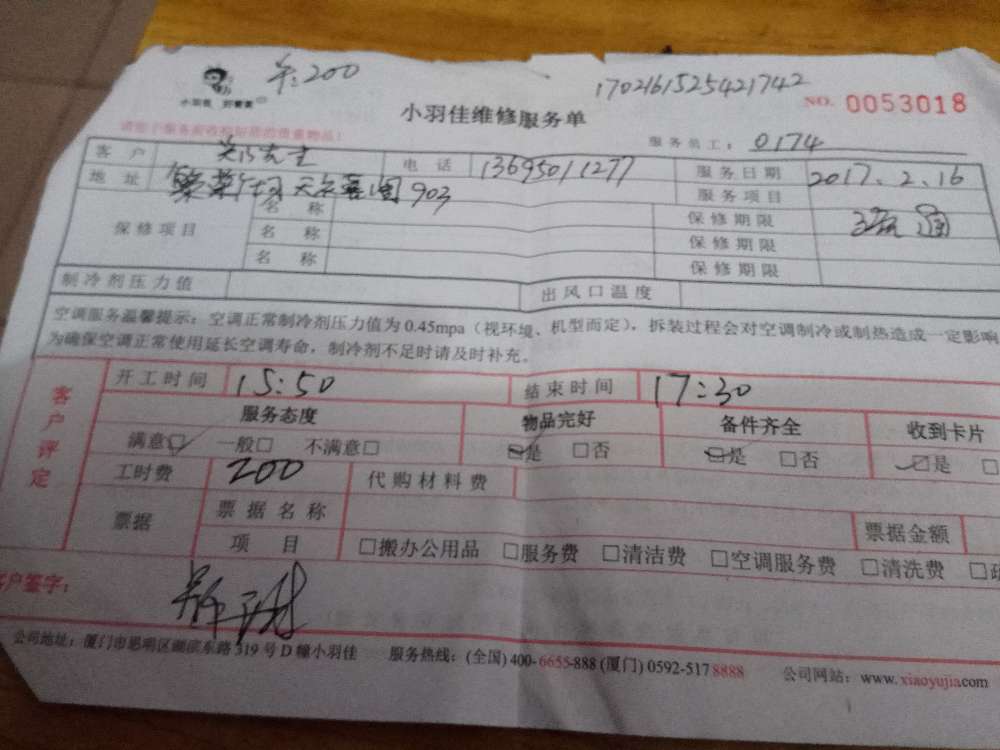 :200
170216152542174​2
小羽佳 好管家
小羽佳维修服务单
NO. 0053018
服务员工: 0174
客户 先生 电话 13695011277 服务日期 2017.2.16
地址 903 服务项目 疏通
保修项目 名称 保修期限
名称 保修期限
名称 保修期限
制冷剂压力值 出风口温度
空调服务温馨提示：空调正常制冷剂压力值为0.45mpa（视环境、机型而定），拆装过程会对空调制冷或制热造成一定影响
为确保空调正常使用延长空调寿命，制冷剂不足时请及时补充。
客户评定
开工时间 15:50 结束时间 17:30
服务态度 物品完好 备件齐全 收到卡片
满意□ 一般□ 不满意□ □是 □否 □是 □否 □是 □
工时费 200 代购材料费
票据 票据名称 票据金额
项目 □搬办公用品 □服务费 □清洁费 □空调服务费 □清洗费 □
客户签字：
公司地址：厦门市思明区湖滨东路319号D幢小羽佳 服务热线：(全国)400-6655-888 (厦门)0592-5178888 公司网站：www.xiaoyujia.com